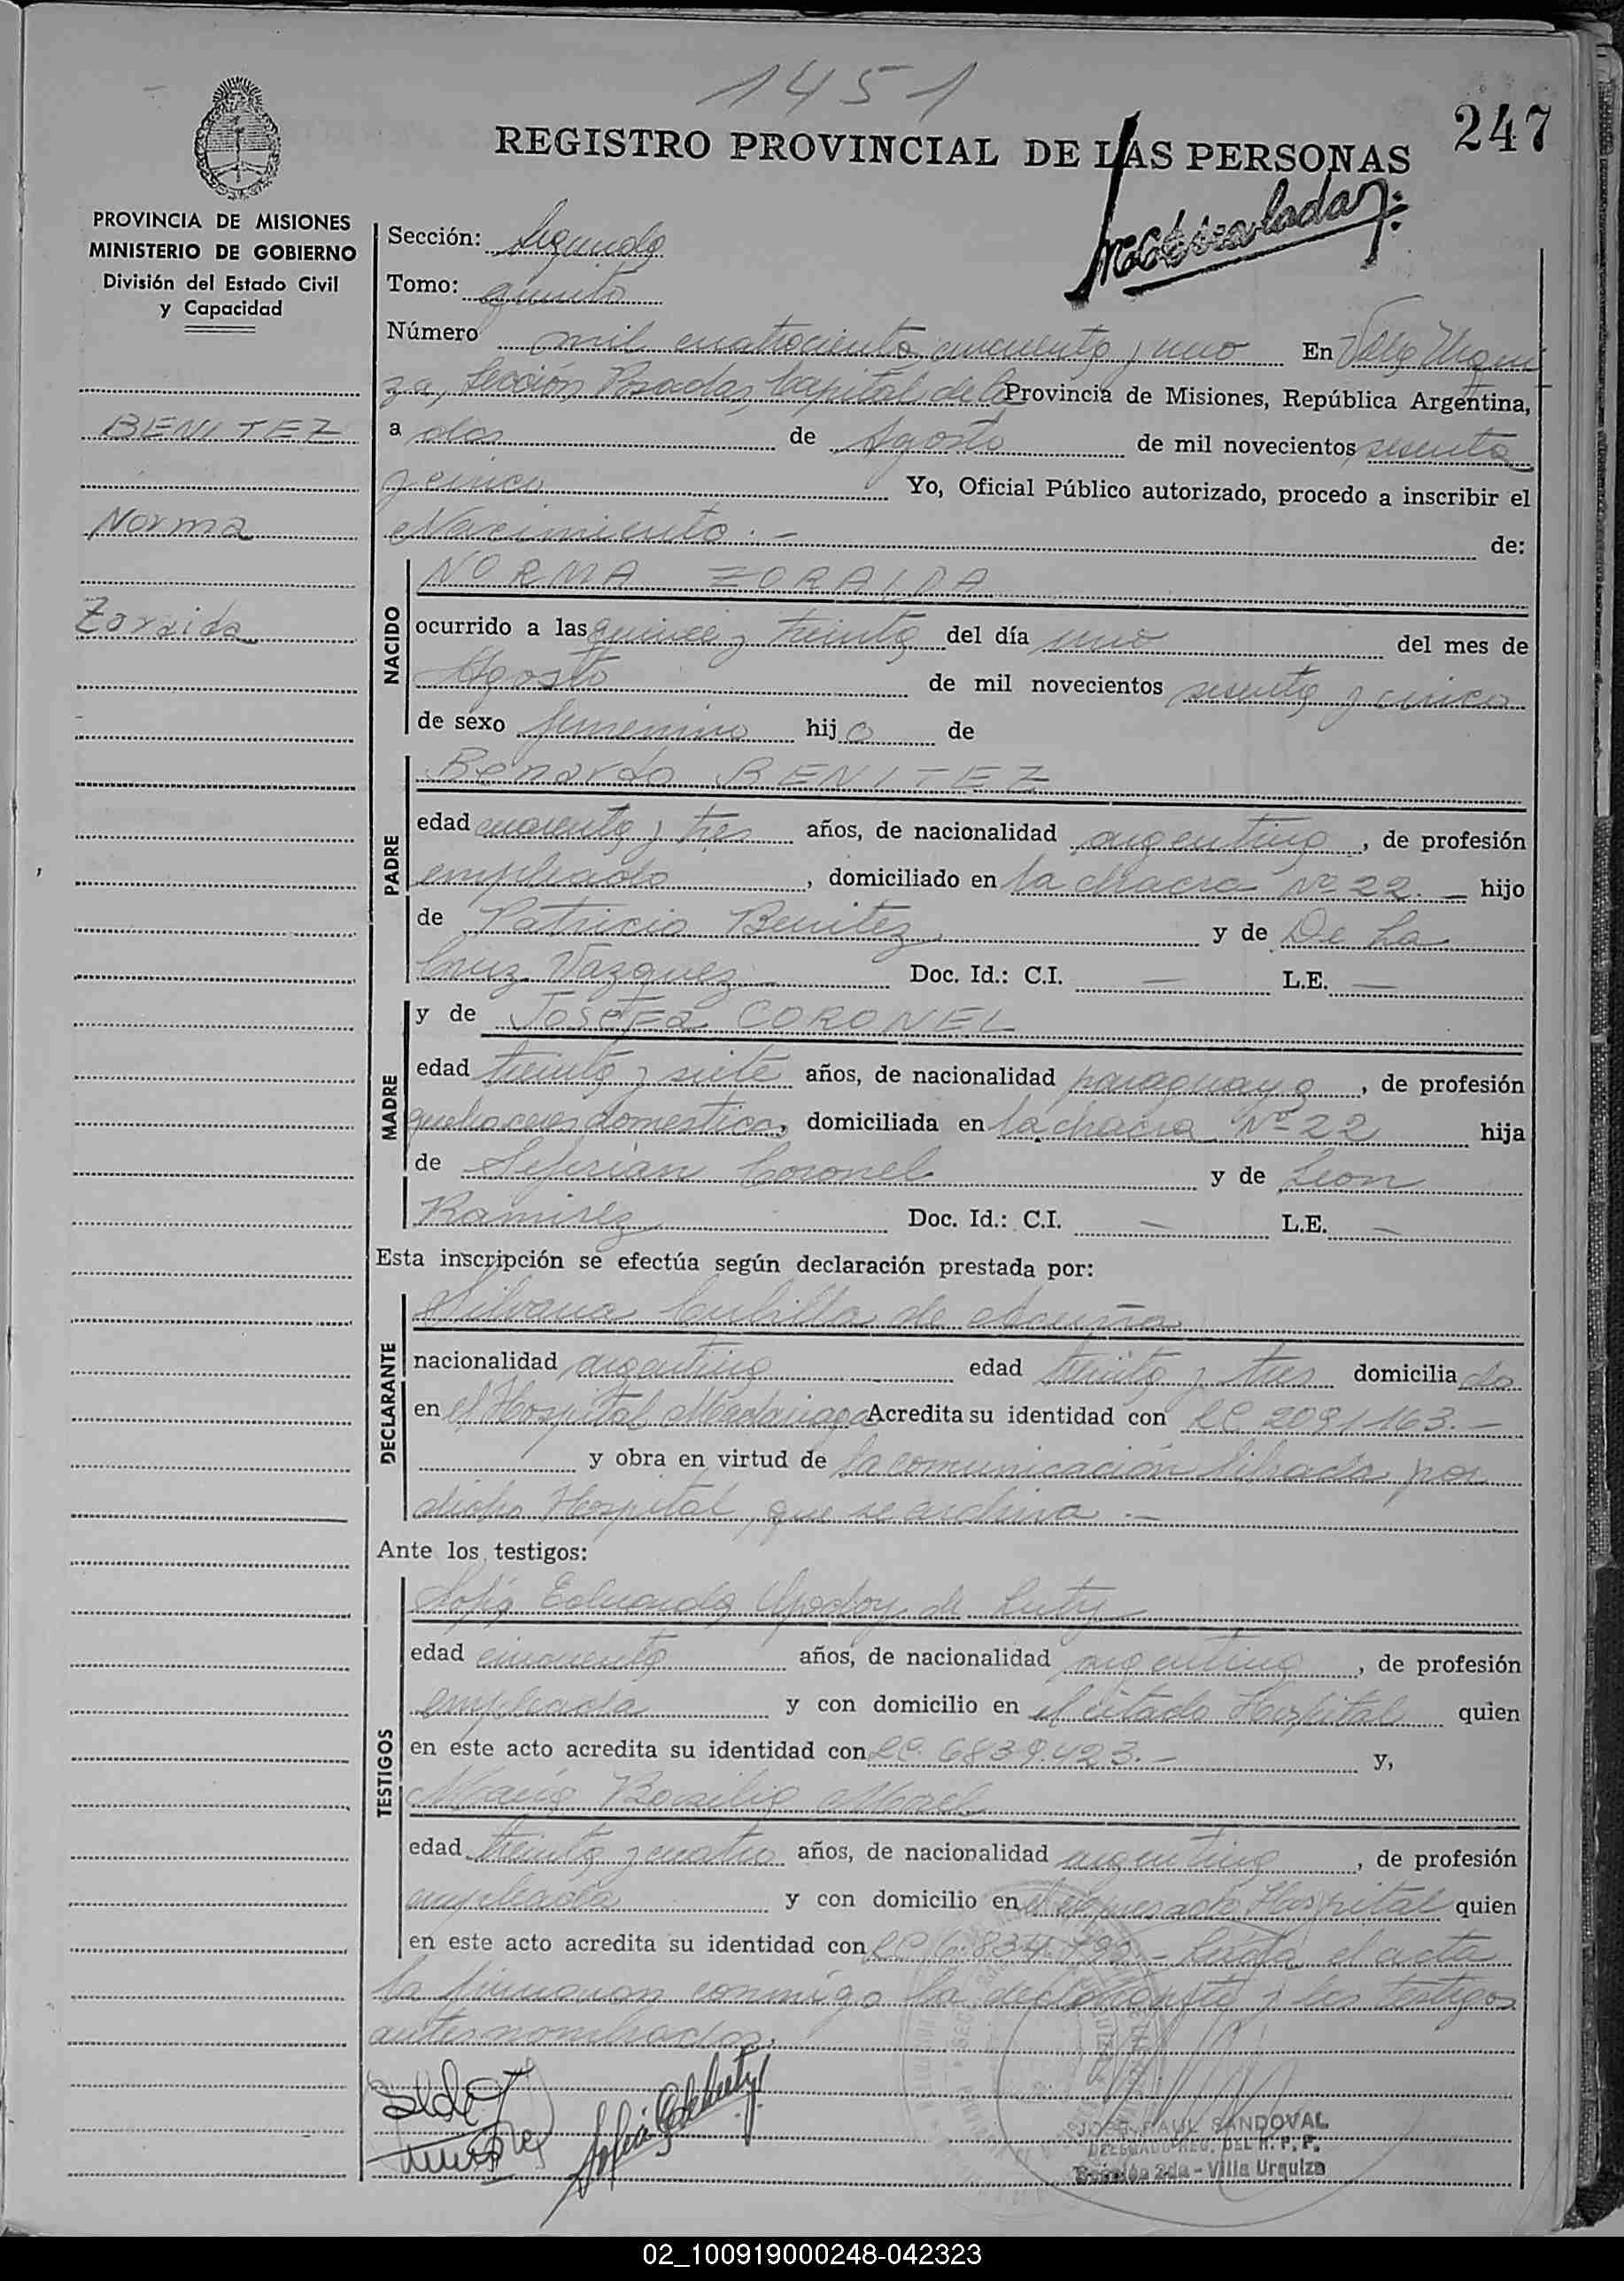 1451
247
REGISTRO PROVINCIAL DE LAS PERSONAS
Matriculada
PROVINCIA DE MISIONES
MINISTERIO DE GOBIERNO
División del Estado Civil
y Capacidad
BENITEZ
Norma
Zoraida
Sección: Segunda
Tomo: quinto
Número mil cuatrociento cincuenta y uno En Villa Urqui
za, Sección Posadas, Capital de la Provincia de Misiones, República Argentina,
a dos de Agosto de mil novecientos sesenta
y cinco Yo, Oficial Público autorizado, procedo a inscribir el
Nacimiento.- de:
NACIDO
NORMA ZORAIDA
ocurrido a las quince y treinta del día uno del mes de
Agosto de mil novecientos sesenta y cinco
de sexo femenino hija de
PADRE
Benardo BENITEZ
edad cuarenta y tres años, de nacionalidad argentina, de profesión
empleado, domiciliado en la chacra Nº 22.- hijo
de Patricio Benitez y de De La
Cruz Vazquez Doc. Id.: C.I. — L.E. —
MADRE
y de JOSEFa CORONEL
edad treinta y siete años, de nacionalidad paraguaya, de profesión
quehaceres domesticos domiciliada en la chacra Nº 22 hija
de Seferian Coronel y de Leon
Ramirez Doc. Id.: C.I. — L.E. —
Esta inscripción se efectúa según declaración prestada por:
DECLARANTE
Silvana Cubilla de Acuña
nacionalidad argentina edad treinta y tres domiciliada
en el Hospital Madariaga Acredita su identidad con LC 2091163.-
y obra en virtud de la comunicación librada por
dicho Hospital, que se archiva.-
Ante los testigos:
TESTIGOS
Sofia Eduarda de Luty
edad cincuenta años, de nacionalidad argentina, de profesión
empleada y con domicilio en el citado Hospital quien
en este acto acredita su identidad con LC. 6839.423.- y,
María Basilia Morel
edad treinta y cuatro años, de nacionalidad argentina, de profesión
empleada y con domicilio en el expresado Hospital quien
en este acto acredita su identidad con LC 6.834.792.- Leída el acta
la firmaron conmigo la declarante y los testigos
antes nombrados.
JORGE RAUL SANDOVAL
DELEGADO REG. DEL R. P. P.
Sección 2da - Villa Urquiza
02_100919000248-042323